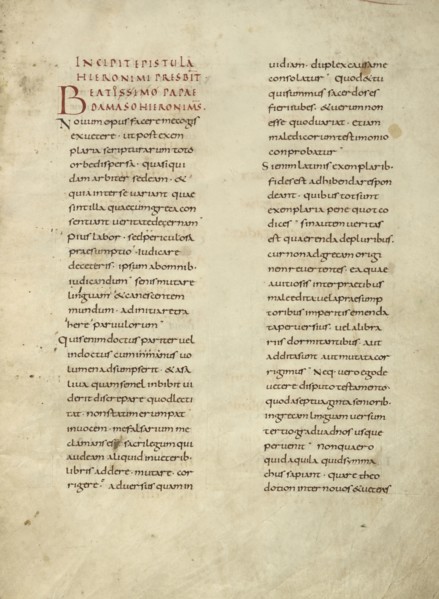 INCIPIT EPISTULA
HIERONIMI PRESBIT
BEATISSIMO PAPAE
DAMASO HIERONIMUS.
Nouum opus facere me cogis
exuetere · ut post exem
plaria scripturarum toto
orbe dispersa · quasi qui
dam arbiter sedeam · &
quia inter se uariant quae
sint illa quae cum greca con
sentiant ueritate decernam
Pius labor · sed periculosa
praesumptio · iudicare
de ceteris · ipsum ab omnib·
iudicandum senis mutare
linguam & canescentem
mundum · ad initia retra
here paruulorum
Quis enim doctus pariter uel
indoctus cum in manus uo
lumen adsumpserit · & a sa
liua quam semel inbibit ui
derit discrepare quod lecti
tat · non statim erumpat
in uocem · me falsarium me
clamans esse sacrilegum qui
audeam aliquid in ueterib·
libris addere · mutare · cor
rigere · aduersus quam in
uidiam · duplex causa me
consolatur quod & tu
qui summus sacerdos es
fieri iubes · & uerum non
esse quod uariat · etiam
maledicorum testimonio
comprobatur
Si enim latinis exemplarib·
fides est adhibenda respon
deant · quibus tot sunt
exemplaria pene quot co
dices sin autem ueritas
est quaerenda de pluribus.
cur non ad grecam origi
nem reuertentes · ea quae
a uitiosis interpraetibus
male edita uel a praesump
toribus imperitis emenda
ta peruersius · uel a libra
riis dormitantibus aut
addita sunt aut mutata cor
rigimus Neq· uero ego de
uetere disputo testamento
quod a septuaginta seniorib·
in grecam linguam uersum
tertio gradu ad nos usque
peruenit non quaero
quid aquila quid symma
chus sapiant · quare theo
dotion inter nouos & ueteres